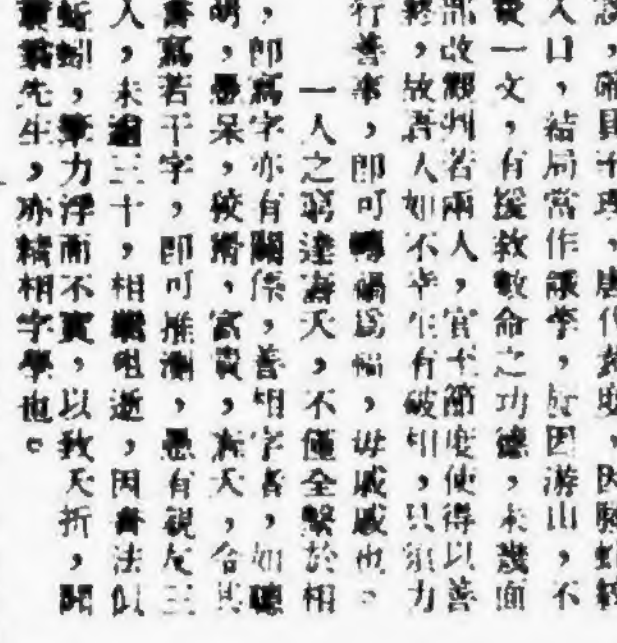 唐代裴度，因騰蛇縱
入口，結局當作餓莩，因游山，不
費一文，有援救數命之功德，未幾面
部改觀判若兩人，官至節度使得以善
終，故吾人如不幸生有破相，只須力
行善事，即可轉禍爲福，毋戚戚也。
一人之窮達壽夭，不僅全繫於相
，即寫字亦有關係，善相字者，如聰
明，愚呆，狡猾，富貴，壽夭，令其
書寫若干字，即可推測，愚有親友三
人，未過三十，相繼殂逝，因書法似
蚯蚓，筆力浮而不實，以致夭折，聞
先生，亦精相字學也。